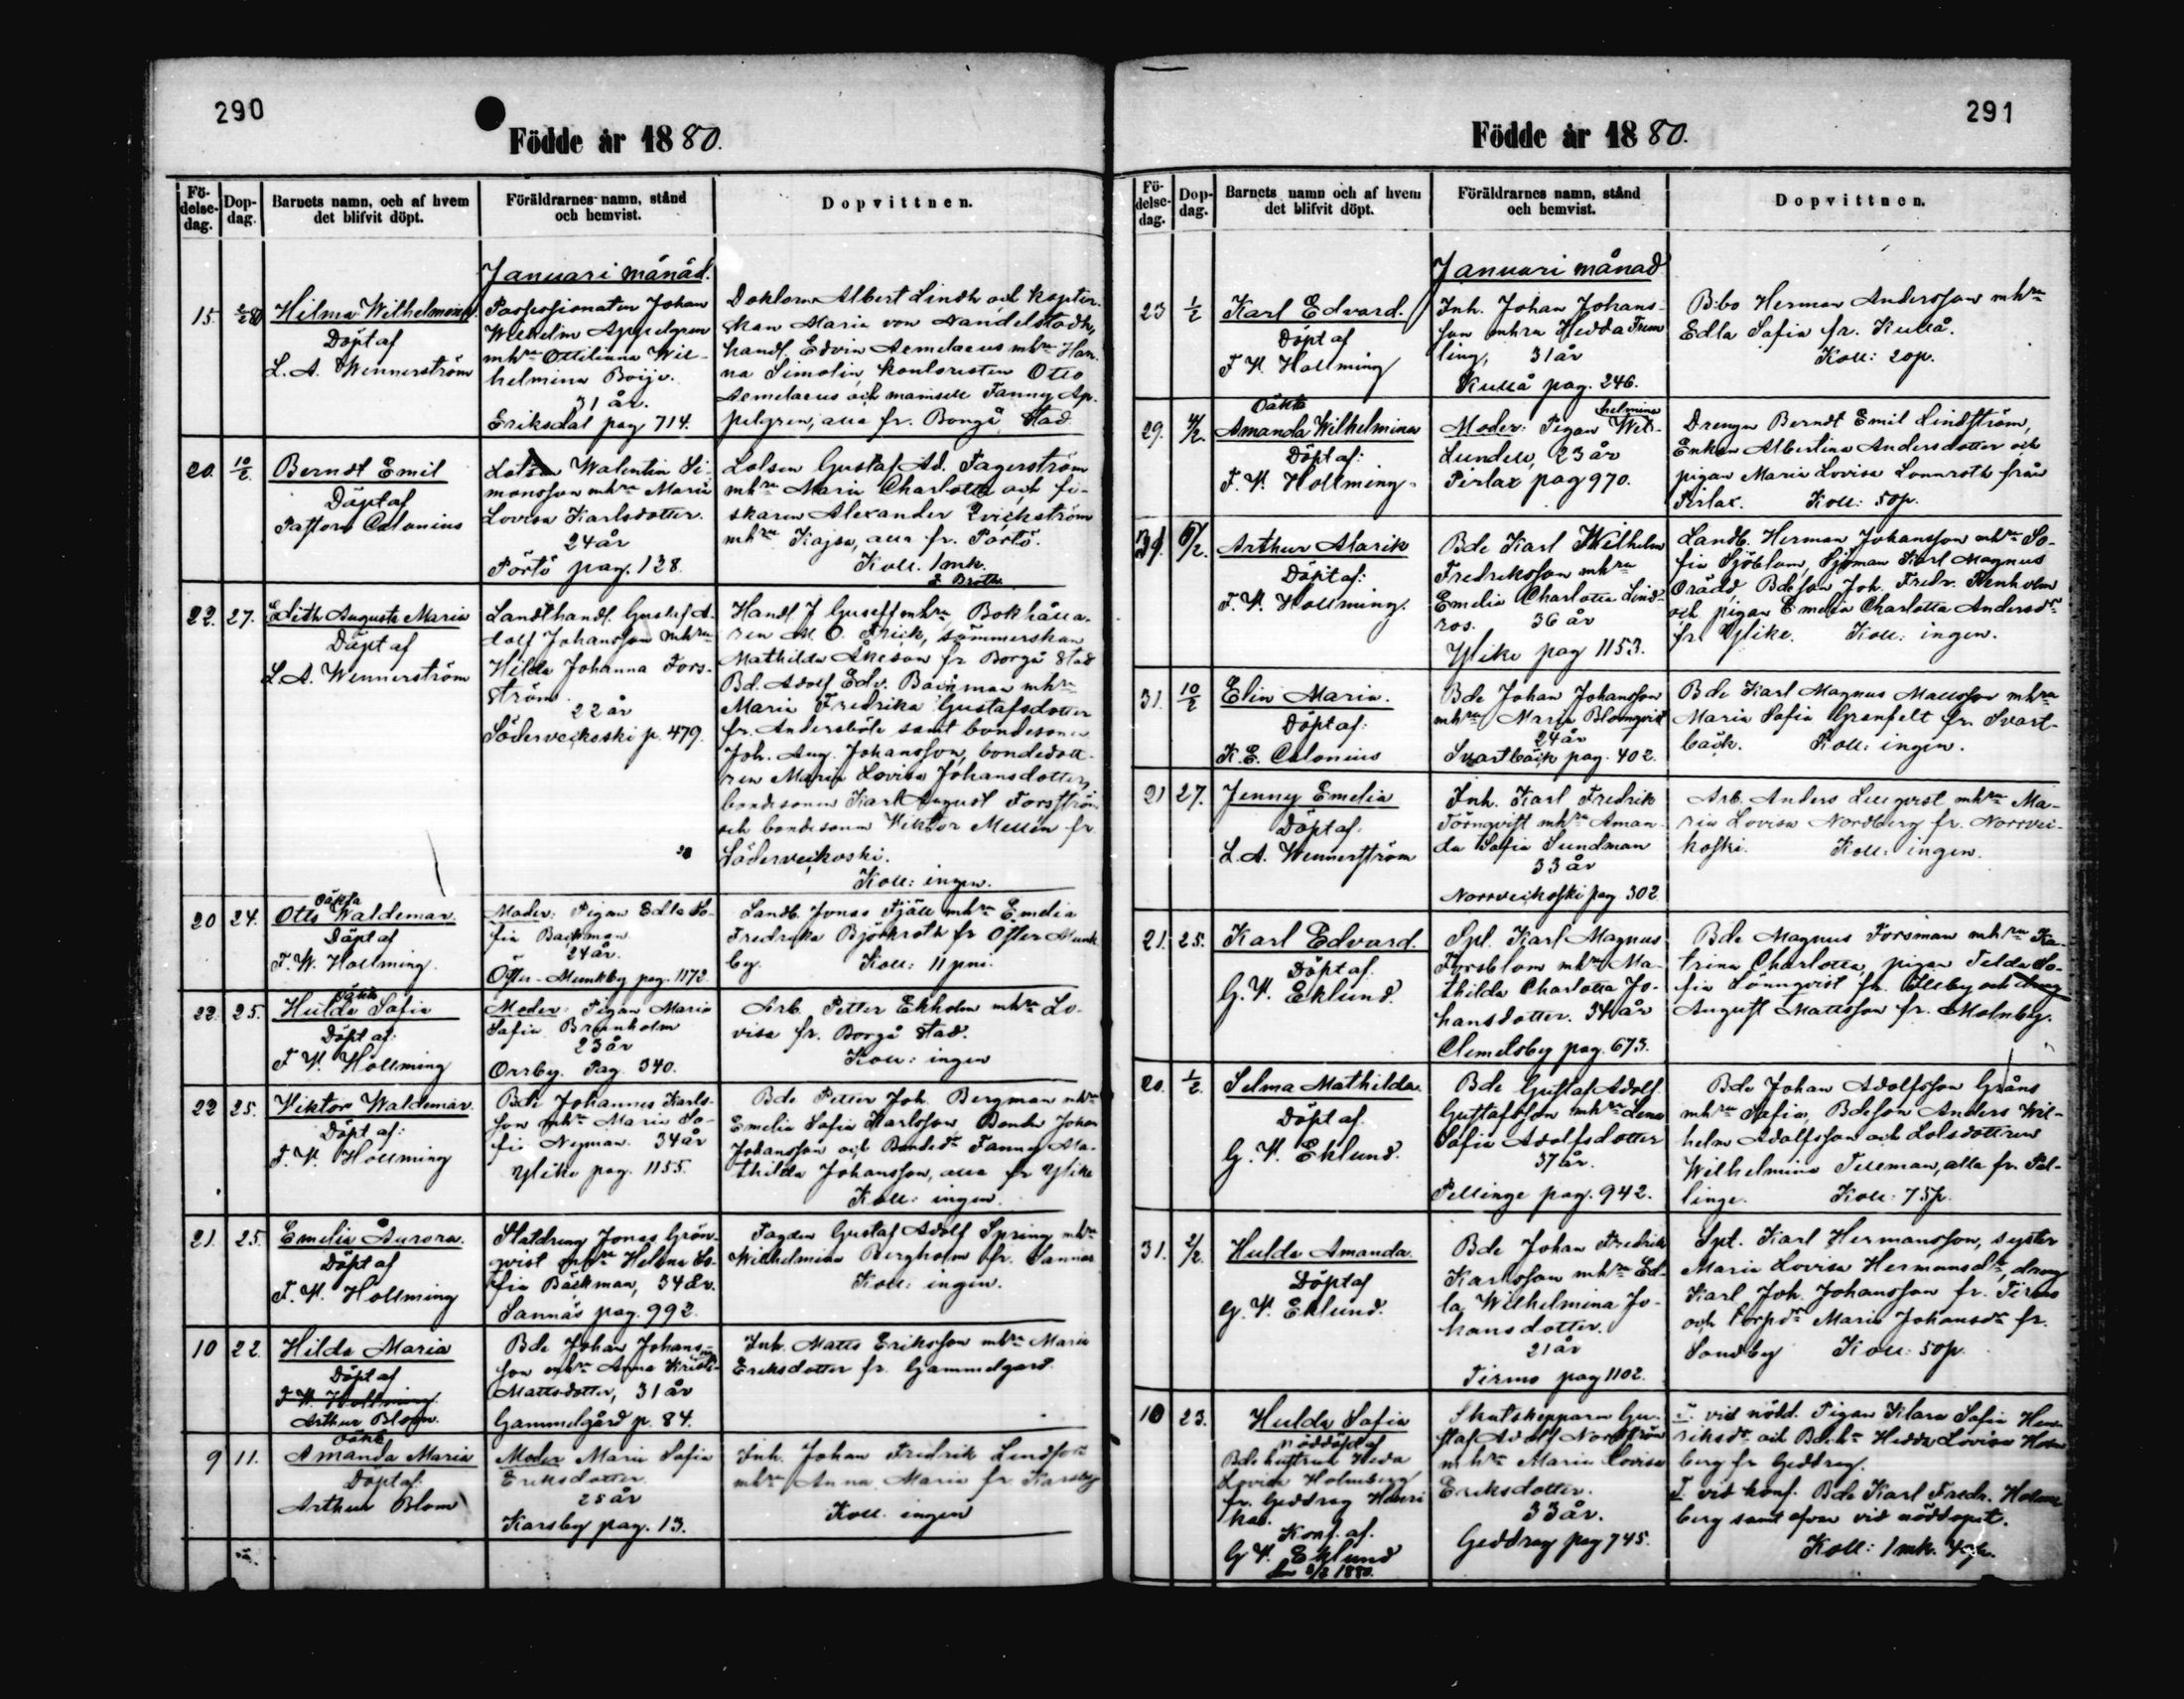 290
Födde år 1880.
Fö-
delse-
dag.
Dop-
dag.
Barnets namn, och af hvem
det blifvit döpt.
Föräldrarnes namn, stånd
och hemvist.
Dopvittnen.
Januari månad.
15.
2/2 80
Hilma Wilhelmina
Döpt af
L. A. Wennerström
Possessionaten Johan
Wilhelm Appelgren
mhru Ottiliana Wil-
helmina Boije.
31 år.
Eriksdal pag 714.
Doktorn Albert Lindh och
Maria von Nandelstadh,
handl. Edvin Aemelaeus mhru Han-
na Simolin, kontoristen Otto
Aemelaeus och mamsell Fanny Ap-
pelgren, alla fr. Borgå Stad.
20.
10/2
Berndt Emil
Döpt af
Pastorn Calonius
Lotsen Walentin Si-
monsson mhru Maria
Lovisa Karlsdotter.
24 år
Pörtö pag. 128.
Lotsen Gustaf Ad. Fagerström
mhru Maria Charlotta och fi-
skaren Alexander Qvickström
mhru Kajsa, alla fr. Pörtö.
Koll. 1 mk.
22.
27.
Edith Augusta Maria
Döpt af
L. A. Wennerström
Landthandl. Gustaf A-
dolf Johansson mhru
Hilda Johanna Fors-
ström
22 år
Söderveckoski p. 479.
Handl. J Guseff mhru, Bokhålla-
ren M. O. Frick, sömmerskan
Mathilda Åkeson fr Borgå Stad
Bd. Adolf Edv. Backman mhru
Maria Fredrika Gustafsdotter
fr. Andersböle samt bondesonen
Joh. Aug. Johansson, bondedott-
ren Maria Lovisa Johansdotter,
bondesonen Karl August Forsström
och bondesonen Wiktor Mellin fr.
Söderveckoski.
Koll: ingen.
20
24.
Oäkta
Otto Waldemar.
Döpt af
F. W. Hollming.
Moder: Pigan Edla So-
fia Backman
24 år.
Öfter-Munkby pag. 1172.
Landb. Jonas Fjäll mhru Emelia
Fredrika Björkroth fr Öfter Munk-
by. Koll: 11 pni.
22.
25.
Oäkta
Hulda Sofia
Döpt af:
F. W. Hollming
Moder: Pigan Maria
Sofia Brunholm
23 år
Orrby. Pag. 340.
Arb. Petter Ekholm mhru Lo-
visa fr. Borgå Stad.
Koll: ingen
22
25.
Wiktor Waldemar.
Döpt af:
F. W. Hollming
Bde Johannes Karls-
son mhru Maria So-
fia Nyman. 34 år
Ylike pag. 1155.
Bde Petter Joh. Bergman mhru
Emelia Sofia Karlsson, Bonde Johan
Johansson och Bondedr Fanny Ma-
thilda Johansson, alla fr Ylike
Koll: ingen.
21.
25.
Emelia Aurora.
Döpt af
F. W. Hollming
Statdreng Jonas Grön-
qvist mhru Helena So-
fia Bäckman, 34 år.
Sannäs pag. 992.
Gustaf Adolf Spring mhru
Wilhelmina Bergholm fr. Sannäs
Koll: ingen.
10
22.
Hilda Maria
Döpt af
F. W. Hollming
Arthur Blom.
Bde Johan Johans-
son mhru Anna Kristi-
Mattsdotter, 31 år
Gammelgård p. 84.
Inh. Matts Eriksson mhru Maria
Eriksdotter fr. Gammelgård.
9
11.
Oäkta
Amanda Maria
Döpt af.
Arthur Blom
Moder Maria Sofia
Eriksdotter
25 år
Karsby pag. 13.
Inh. Johan Fredrik Lindfors
mhru Anna Maria fr. Karsby
Koll. ingen
291
Födde år 1880.
Fö-
delse-
dag.
Dop-
dag.
Barnets namn och af hvem
det blifvit döpt.
Föräldrarnes namn, stånd
och hemvist.
Dopvittnen.
Januari månad
23
1/2
Karl Edvard.
Döpt af
F W Hollming
Inh. Johan Johans-
son mhru Hedda Frem
ling, 31 år
Kullå pag. 246.
Bbo Herman Andersson mhru
Edla Sofia fr. Kullå.
Koll: 20 p.
29.
4/2.
Oäkta
Amanda Wilhelmina
Döpt af:
F. W. Hollming.
Moder: Pigan Wil-
helmina
Lundell, 23 år
Pirlax pag 970.
Drengen Berndt Emil Lindström,
Enkan Albertina Andersdotter och
pigan Maria Lovisa Lönnroth från
Pirlax. Koll: 50 p.
31.
6/2.
Arthur Alarik
Döpt af:
F. W. Hollming.
Bde Karl Wilhelm
Fredriksson mhru
Emelia Charlotta Lind-
ros. 36 år
Ylike pag 1153.
Landb. Herman Johansson mhru So-
fia Sjöblom, Sjöman Karl Magnus
Orädd, Bdeson Joh. Fredr. Stenholm
och pigan Emelia Charlotta Andersdr
fr Ylike. Koll: ingen.
31.
10/2
Elin Maria.
Döpt af:
K. E. Calonius
Bde Johan Johansson
mhru Maria Blomqvist
24 år
Svartbäck pag. 402.
Bde Karl Magnus Mattsson mhru
Maria Sofia Granfelt fr. Svart-
bäck. Koll: ingen.
21
27.
Jenny Emelia
Döpt af:
L. A. Wennerström
Inh. Karl Fredrik
Törnqvist mhru Aman-
da Sofia Sundman
33 år
Norrveckoski pag. 302
Arb. Anders Lillqvist mhru Ma-
ria Lovisa Nordberg fr. Norrvec-
koski. Koll: ingen.
21.
25.
Karl Edvard.
Döpt af.
G. W. Eklund.
Spl. Karl Magnus
Forsblom mhru Ma-
thilda Charlotta Jo-
hansdotter. 34 år
Clemetsby pag. 673.
Bde Magnus Forsman mhru Ka-
trina Charlotta, pigan Tilda So-
fia Lönnqvist fr. Illby och dreng
August Mattsson fr. Molnby.
20.
1/2
Selma Mathilda.
Döpt af.
G. W. Eklund.
Bde Gustaf Adolf
Gustafsson mhru Lena
Sofia Adolfsdotter
37 år.
Pellinge pag. 942.
Bde Johan Adolfsson Gråns
mhru Sofia, Bdeson Anders Wil-
helm Adolfsson och Lotsdottren
Wilhelmina Tillman, alla fr. Pel-
linge. Koll: 75 p.
31.
2/2.
Hulda Amanda.
Döpt af
G. W. Eklund.
Bde Johan Fredrik
Karlsson mhru Ed-
la Wilhelmina Jo-
hansdotter.
21 år
Tirmo pag 1102.
Spl. Karl Hermansson, syster
Maria Lovisa Hermansdr, dreng
Karl Joh. Johansson fr. Tirmo
och Torpdr Maria Johansdr fr.
Sondby Koll: 50 p.
10
23.
Hulda Sofia
nöddöpt af
Bdehustrun Heda
Lovisa Holmberg
fr. Geddrag
Konf. af.
G W. Eklund
den 2/2 1880.
Skutskepparen Gu-
staf Adolf Nordström
mhru Maria Lovisa
Eriksdotter.
33 år.
Geddrag pag 745.
T. vid nödd. Pigan Klara Sofia Hen-
riksdr och Bdehu Hedda Lovisa Holm
berg fr Geddrag.
T. vid konf. Bde Karl Fredr. Holm
berg samt ofvan vid nöddopet.
Koll: 1 mk.